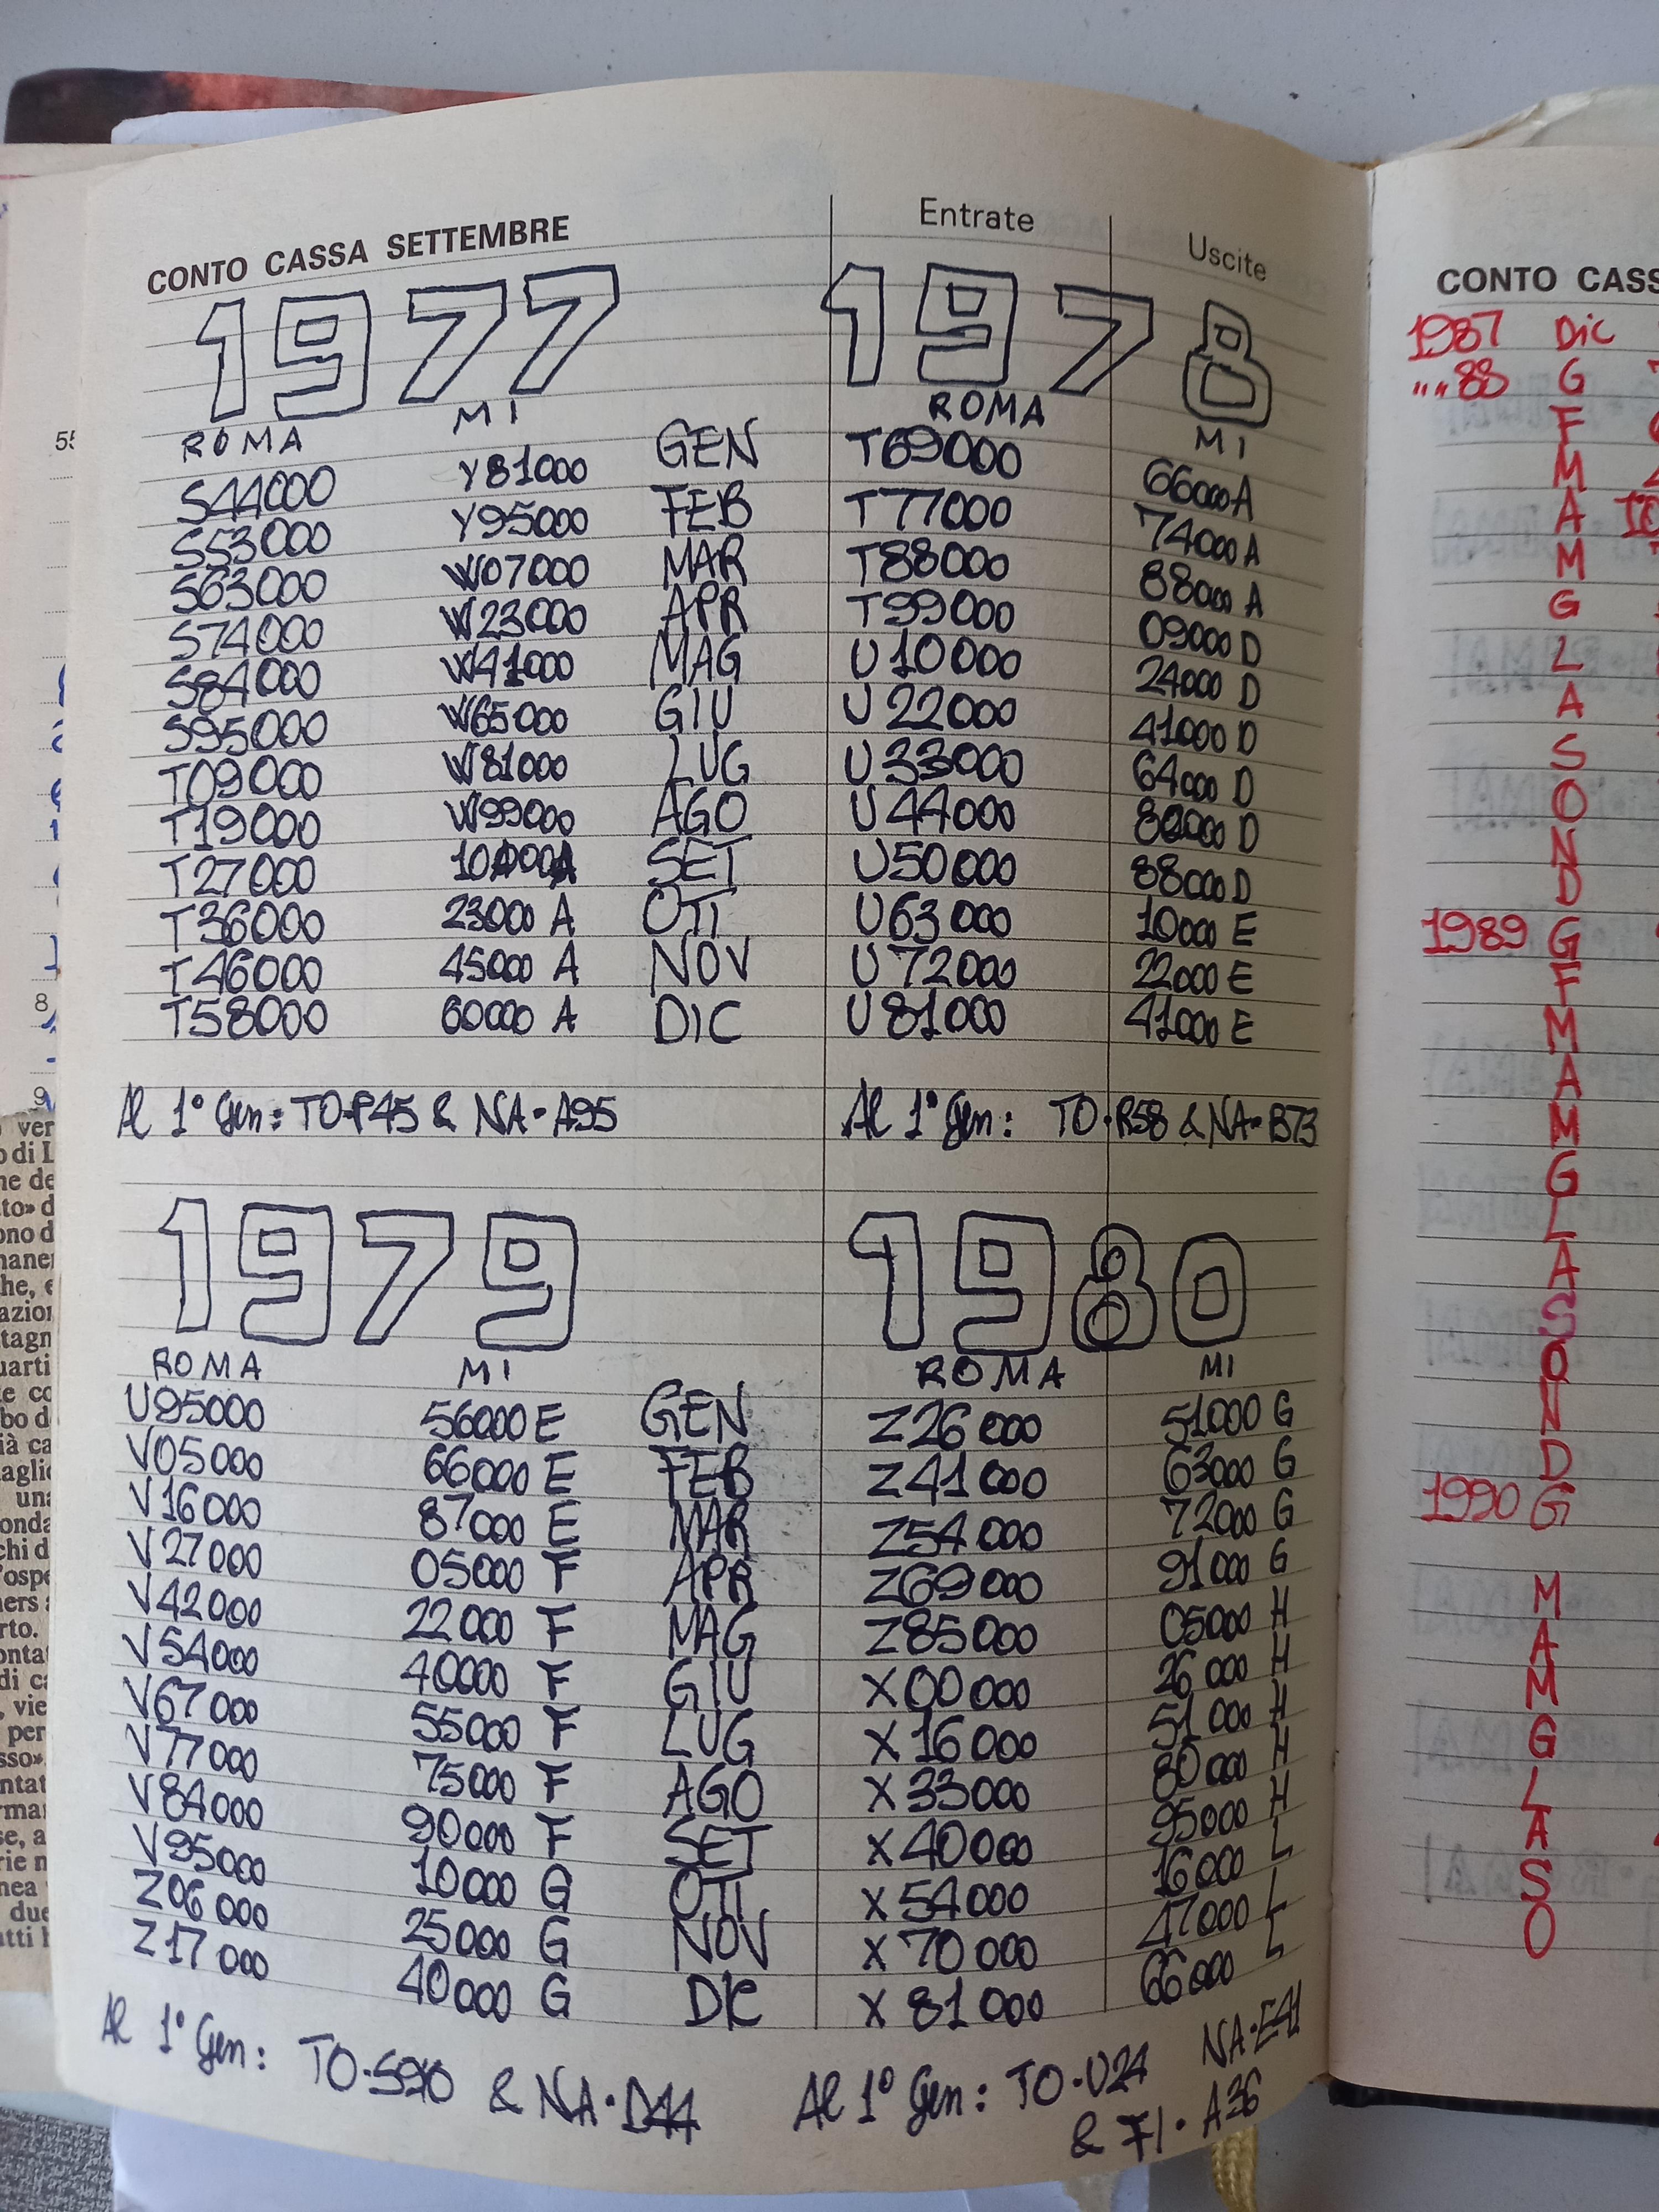 CONTO CASSA SETTEMBRE Entrate Uscite
1977 1978
ROMA MI ROMA MI
S44000 Y81000 GEN T69000 66000A
S53000 Y95000 FEB T77000 74000A
S63000 W07000 MAR T88000 88000A
S74000 W23000 APR T99000 09000D
S84000 W41000 MAG U10000 24000D
S95000 W65000 GIU U22000 41000D
T09000 W81000 LUG U33000 64000D
T19000 W99000 AGO U44000 80000D
T27000 10000A SET U50000 88000D
T36000 23000 A OTT U63000 10000E
T46000 45000 A NOV U72000 22000E
T58000 60000 A DIC U81000 41000E
Al 1° Gen: TO·P45 & NA·A95 Al 1° Gen: TO·R58 & NA·B73
1979 1980
ROMA MI ROMA MI
U95000 56000E GEN Z26000 51000 G
V05000 66000E FEB Z41000 63000 G
V16000 87000E MAR Z54000 72000 G
V27000 05000 F APR Z69000 91000 G
V42000 22000 F MAG Z85000 05000 H
V54000 40000 F GIU X00000 26000 H
V67000 55000 F LUG X16000 51000 H
V77000 75000 F AGO X33000 80000 H
V84000 90000 F SET X40000 95000 H
V95000 10000 G OTT X54000 16000 L
Z06000 25000 G NOV X70000 47000 L
Z17000 40000 G DIC X81000 66000 L
Al 1° Gen: & NA·D44 Al 1° Gen: TO·U24 NA·E41
& FI·A36
CONTO CASS
1987 Dic
""88 G
F
M
A
M
G
L
A
S
O
N
D
1989 G
F
M
A
M
G
L
A
S
O
N
D
1990 G
M
A
M
G
L
A
S
O